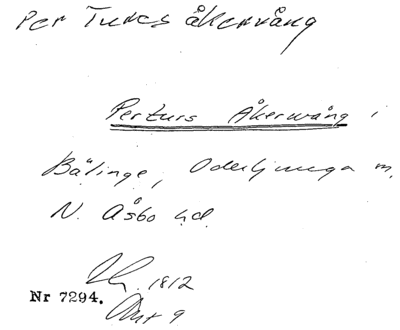 Per Tures åkervång
Perturs Åkerwång i
Bälinge, Oderljunga m.
N. Åsbo hd.
1812
Nr 7294.
Akt 9